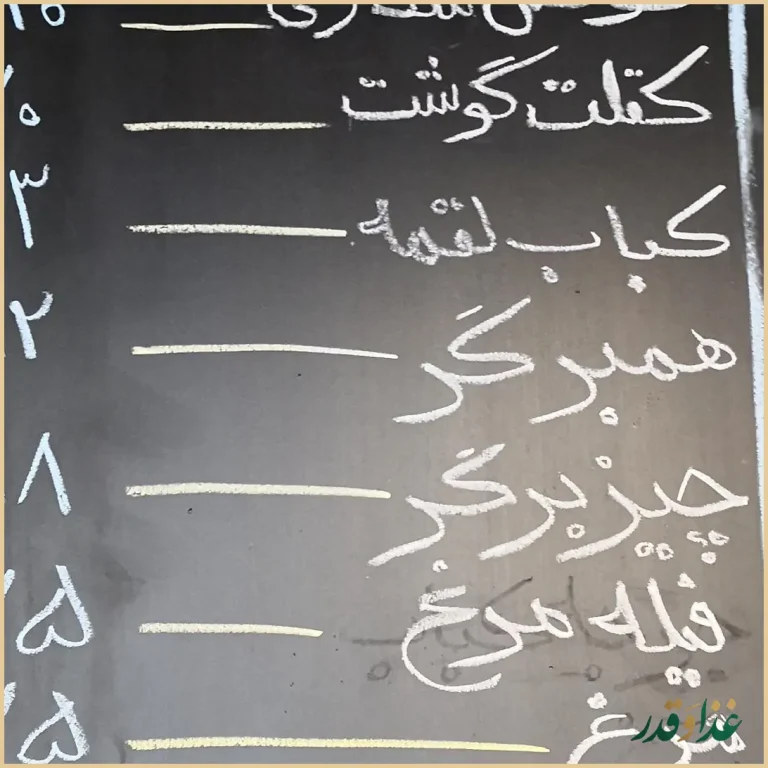 کتلت گوشت ۱۰
کباب لقمه ۳
همبرگر ۲
چیزبرگر ۸
فیله مرغ ۱۵
مرغ ۵
غذا و قدر